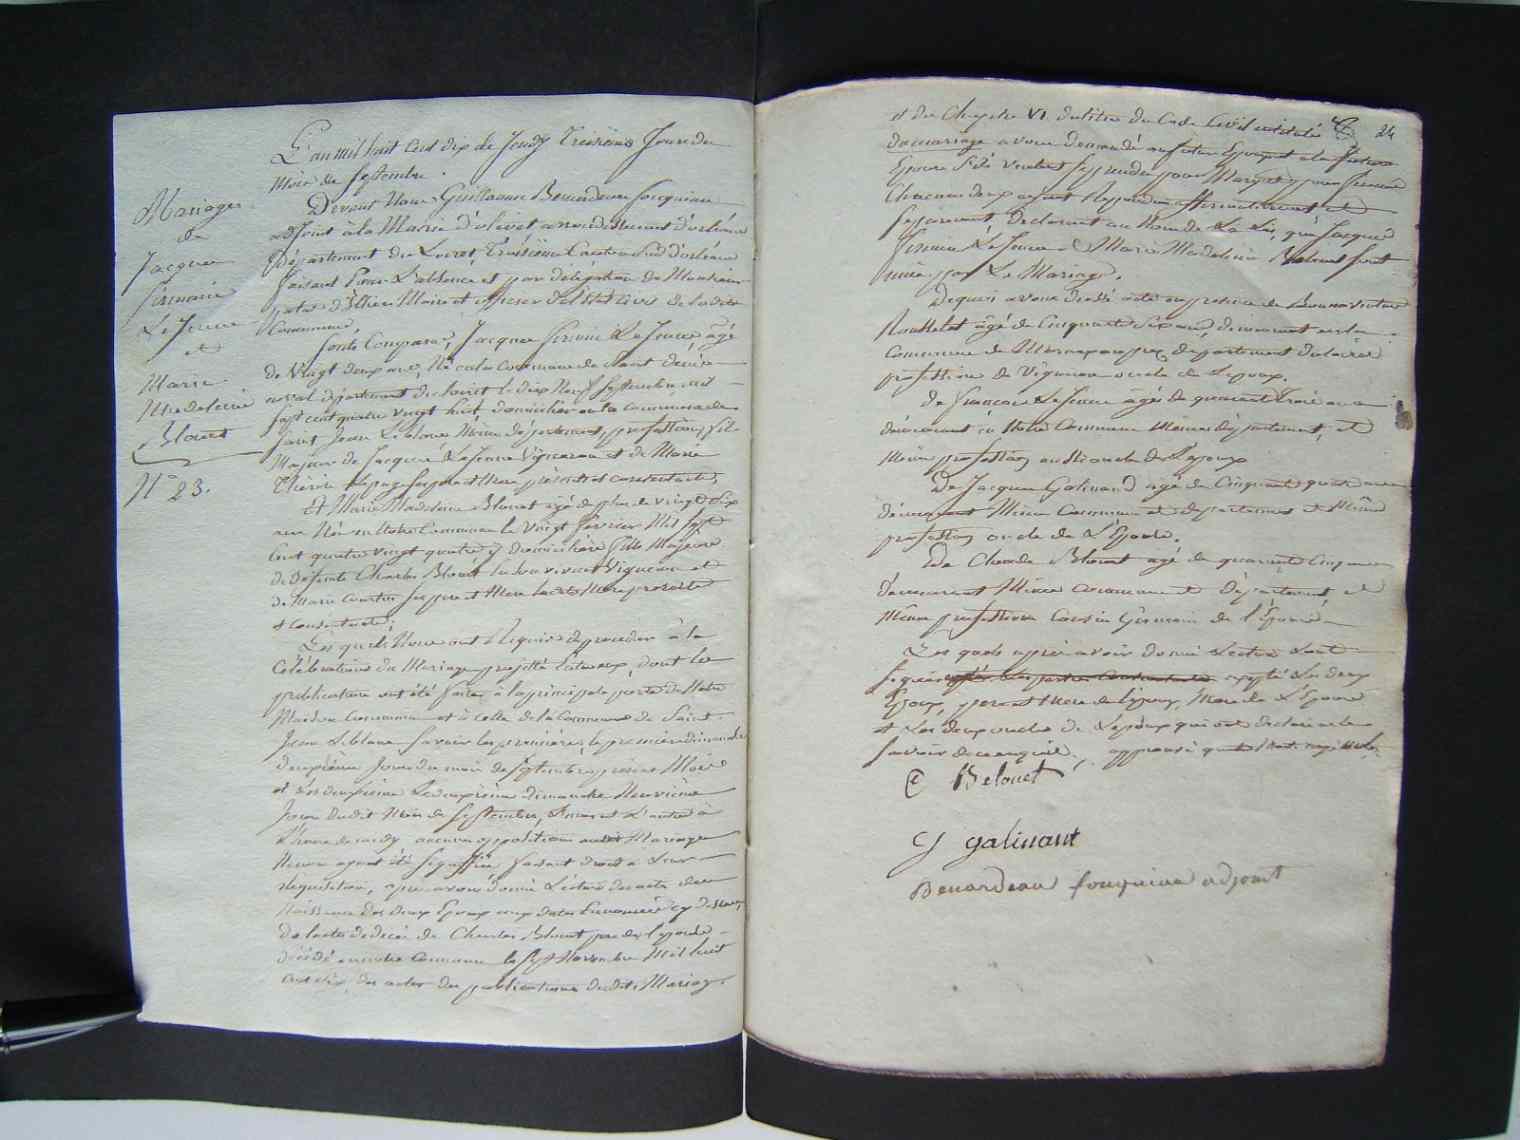 Mariage
de
Jacques
Firmin
Le Jeune
et
Marie
Madeleine
Blouet
N° 23.
L'an mil huit cent dix le Jeudy treizième Jour du
Mois de Septembre.
Devant Nous Guillaume Benardeau fouquiau
adjoint à la Mairie d'olivet arrondissement d'orléans
Département du Loiret,
faisant Pour L'absence et par délégation de Monsieur
Maire et officier de l'état Civil de la dite
Commune,
Sont Comparus, Jacques Firmin Le Jeune âgé
de Vingt deux ans, Né en la Commune de Saint denis
en val département du Loiret le dix Neuf Septembre mil
sept cent quatre vingt huit, domicilié en la commune de
saint Jean Le blanc Même département, profession, fils
Majeur de Jacques Le Jeune Vigneron et de Marie
ses père et Mere présents et consentants,
Et Marie Madeleine Blouet agé de plus de vingt Six
ans Née en Notre Commune le Vingt février Mil Sept
Cent quatre vingt quatre y domiciliée fille Majeure
de Défunt Charles Blouet de son vivant Vigneron et
de Marie ses père et Mere ladte Mere presente
et consentante;
Les quels Nous ont Requis de proceder à la
Célébration du Mariage projetté entre eux, dont les
publications ont été faites à la principale porte de Notre
Maison Commune et à Celle de la Commune de Saint
Jean Le blanc savoir les premières, le premier dimanche
deuxième Jour du mois de septembre present Mois
et Les deuxième Le deuxième dimanche Neuvième
Jour dudit Mois de Septembre, L'une et L'autre à
L'heure de midy aucune opposition audit Mariage
Ne nous ayant été Signiffiée faisant droit à Leur
réquisition, après avoir donné Lecture des actes de
Naissance des deux Epoux aux dates Enoncées cy dessus,
de l'acte de decès de Charles Blouet père de l'epouse
décédé en notre Commune le sept Novembre Mil huit
cent six, des actes des publications dudit Mariage.
24
et du Chapitre VI du titre du Code Civil intitulé
du mariage avons demandé au futur Epoux et à la future
Epouse S'ils veulent se prendre pour Mary et pour femme
Chacun deux ayant Repondu affirmativement et
separement declarons au Nom de La Loi, que Jacques
Firmin Le Jeune et Marie Madeleine Blouet sont
unis par Le Mariage.
De quoi avons dressé acte en presence de
Rousselet âgé de Cinquante Six ans, demeurant en la
Commune de département du Loiret
profession de Vigneron oncle de Lepoux.
de François Le Jeune âgé de quarante Trois ans
demeurant en Notre Commune Même département, et
Même profession aussi oncle de Lepoux
De Jacques Galinand agé de Cinquante quatre ans
demeurant Même Commune et departement et Même
profession oncle de L'Epouse.
Et de Claude Blouet agé de quarante Cinq ans
demeurant Même commune et département et
Même profession Cousin Germain de l'Epouse
Les quels apres avoir donné Lecture ont
signé excepté Les deux
Epoux, pere et Mere de l'epoux, Mere de L'Epouse
et Les deux oncles de Lepoux qui ont declaré ne le
savoir de ce enquis,
C Belouet
J galinant
Benardeau fouquiau adjoint